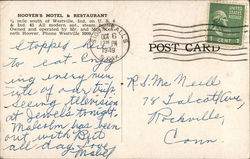 HOOVER'S MOTEL & RESTAURANT
½ mile south of Westville, Ind. on U. S. 6
Owned and operated by Mr. and Mrs.
neth Hoover. Phone Westville
POST CARD
OCT 6
1949
Stopped here
to eat. Enjoy
ing every min
ute of our trip.
Seeing television
at Jewels tonight.
Malcolm has been
out with Bill
all day. Love
Mabel
R.S. Mc Neill
78 Talcott Ave
Rockville,
Conn.